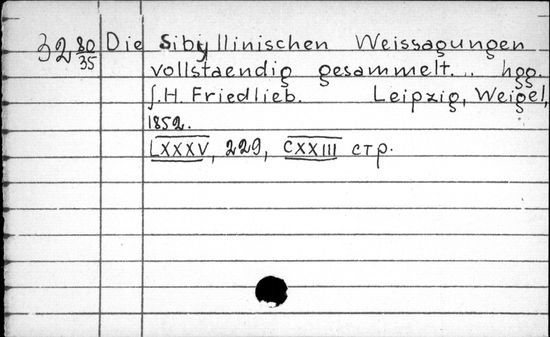 32 80/35 Die Sibyllinischen Weissagungen
vollstaendig gesammelt... hgg.
J.H. Friedlieb. Leipzig, Weigel,
1852.
LXXXV, 229, CXXIII стр.